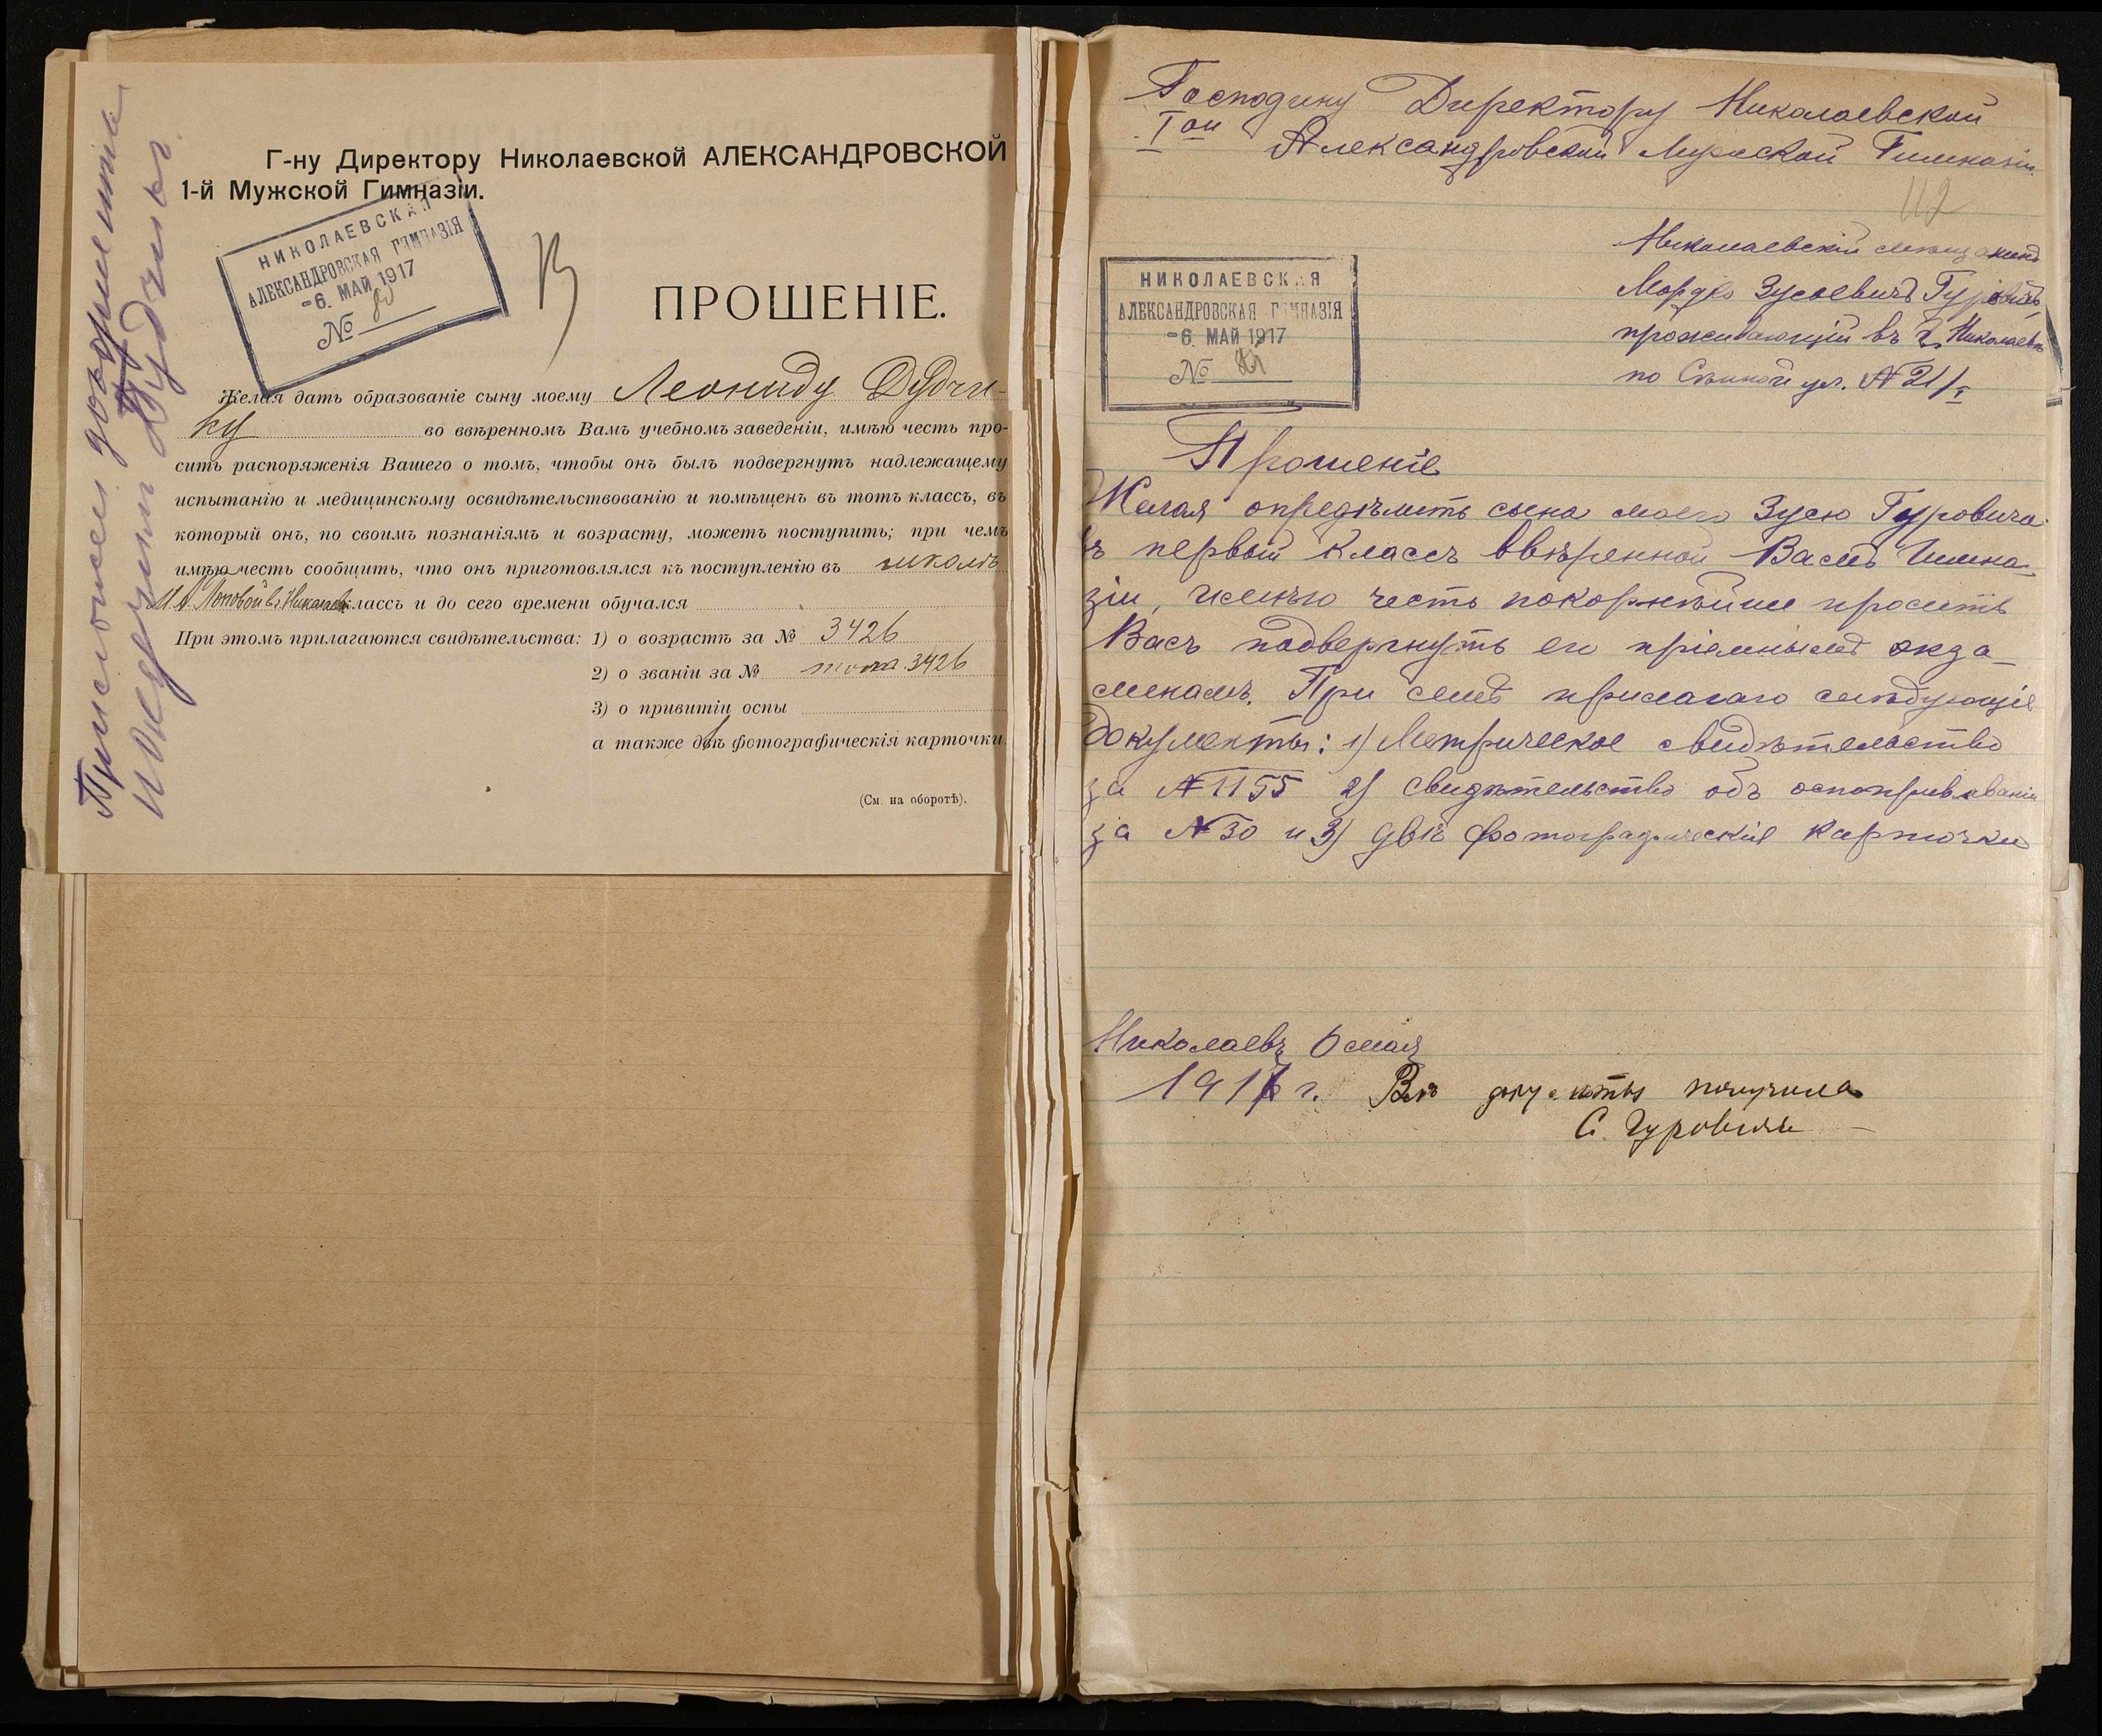 Г-ну Директору Николаевской АЛЕКСАНДРОВСКОЙ
1-й Мужской Гимназіи.
НИКОЛАЕВСКАЯ
АЛЕКСАНДРОВСКАЯ ГИМНАЗІЯ
-6. МАЙ 1917
№
ПРОШЕНІЕ.
Желая дать образованіе сыну моему Леониду Дудчи-
ку во ввѣренномъ Вамъ учебномъ заведеніи, имѣю честь про-
сить распоряженія Вашего о томъ, чтобы онъ былъ подвергнутъ надлежащему
испытанію и медицинскому освидѣтельствованію и помѣщенъ въ тотъ классъ, въ
который онъ, по своимъ познаніямъ и возрасту, можетъ поступить; при чемъ
имѣю честь сообщить, что онъ приготовлялся къ поступленію въ школѣ
Поповой в г. Николаевѣ классъ и до сего времени обучался
При этомъ прилагаются свидѣтельства: 1) о возрастѣ за № 3426
2) о званіи за № 3426
3) о привитіи оспы
а также двѣ фотографическія карточки.
(См. на оборотѣ).
документы
Дудчикъ.
Господину Директору Николаевской
Iой Александровской Мужской Гимназіи
112
Николаевскій мѣщанинъ
Мордко Зусевичъ Гуровичъ
проживающій въ г. Николаевѣ
по Сѣнной ул. № 21/1
НИКОЛАЕВСКАЯ
АЛЕКСАНДРОВСКАЯ ГИМНАЗІЯ
-6. МАЙ 1917
№ 81
Прошеніе
Желая опредѣлить сына моего Зусю Гуровича
въ первый классъ ввѣренной Вамъ Гимна-
зіи, имѣю честь покорнѣйше просить
Васъ подвергнуть его пріемнымъ экза-
менамъ. При семъ прилагаю слѣдующіе
документы: 1) Метрическое свидѣтельство
за № 1155 2) Свидѣтельство объ оспопрививаніи
за № 30 и 3) двѣ фотографическія карточки
Николаевъ 6 мая
1917 г. Всѣ документы получила
С. Гуровичъ